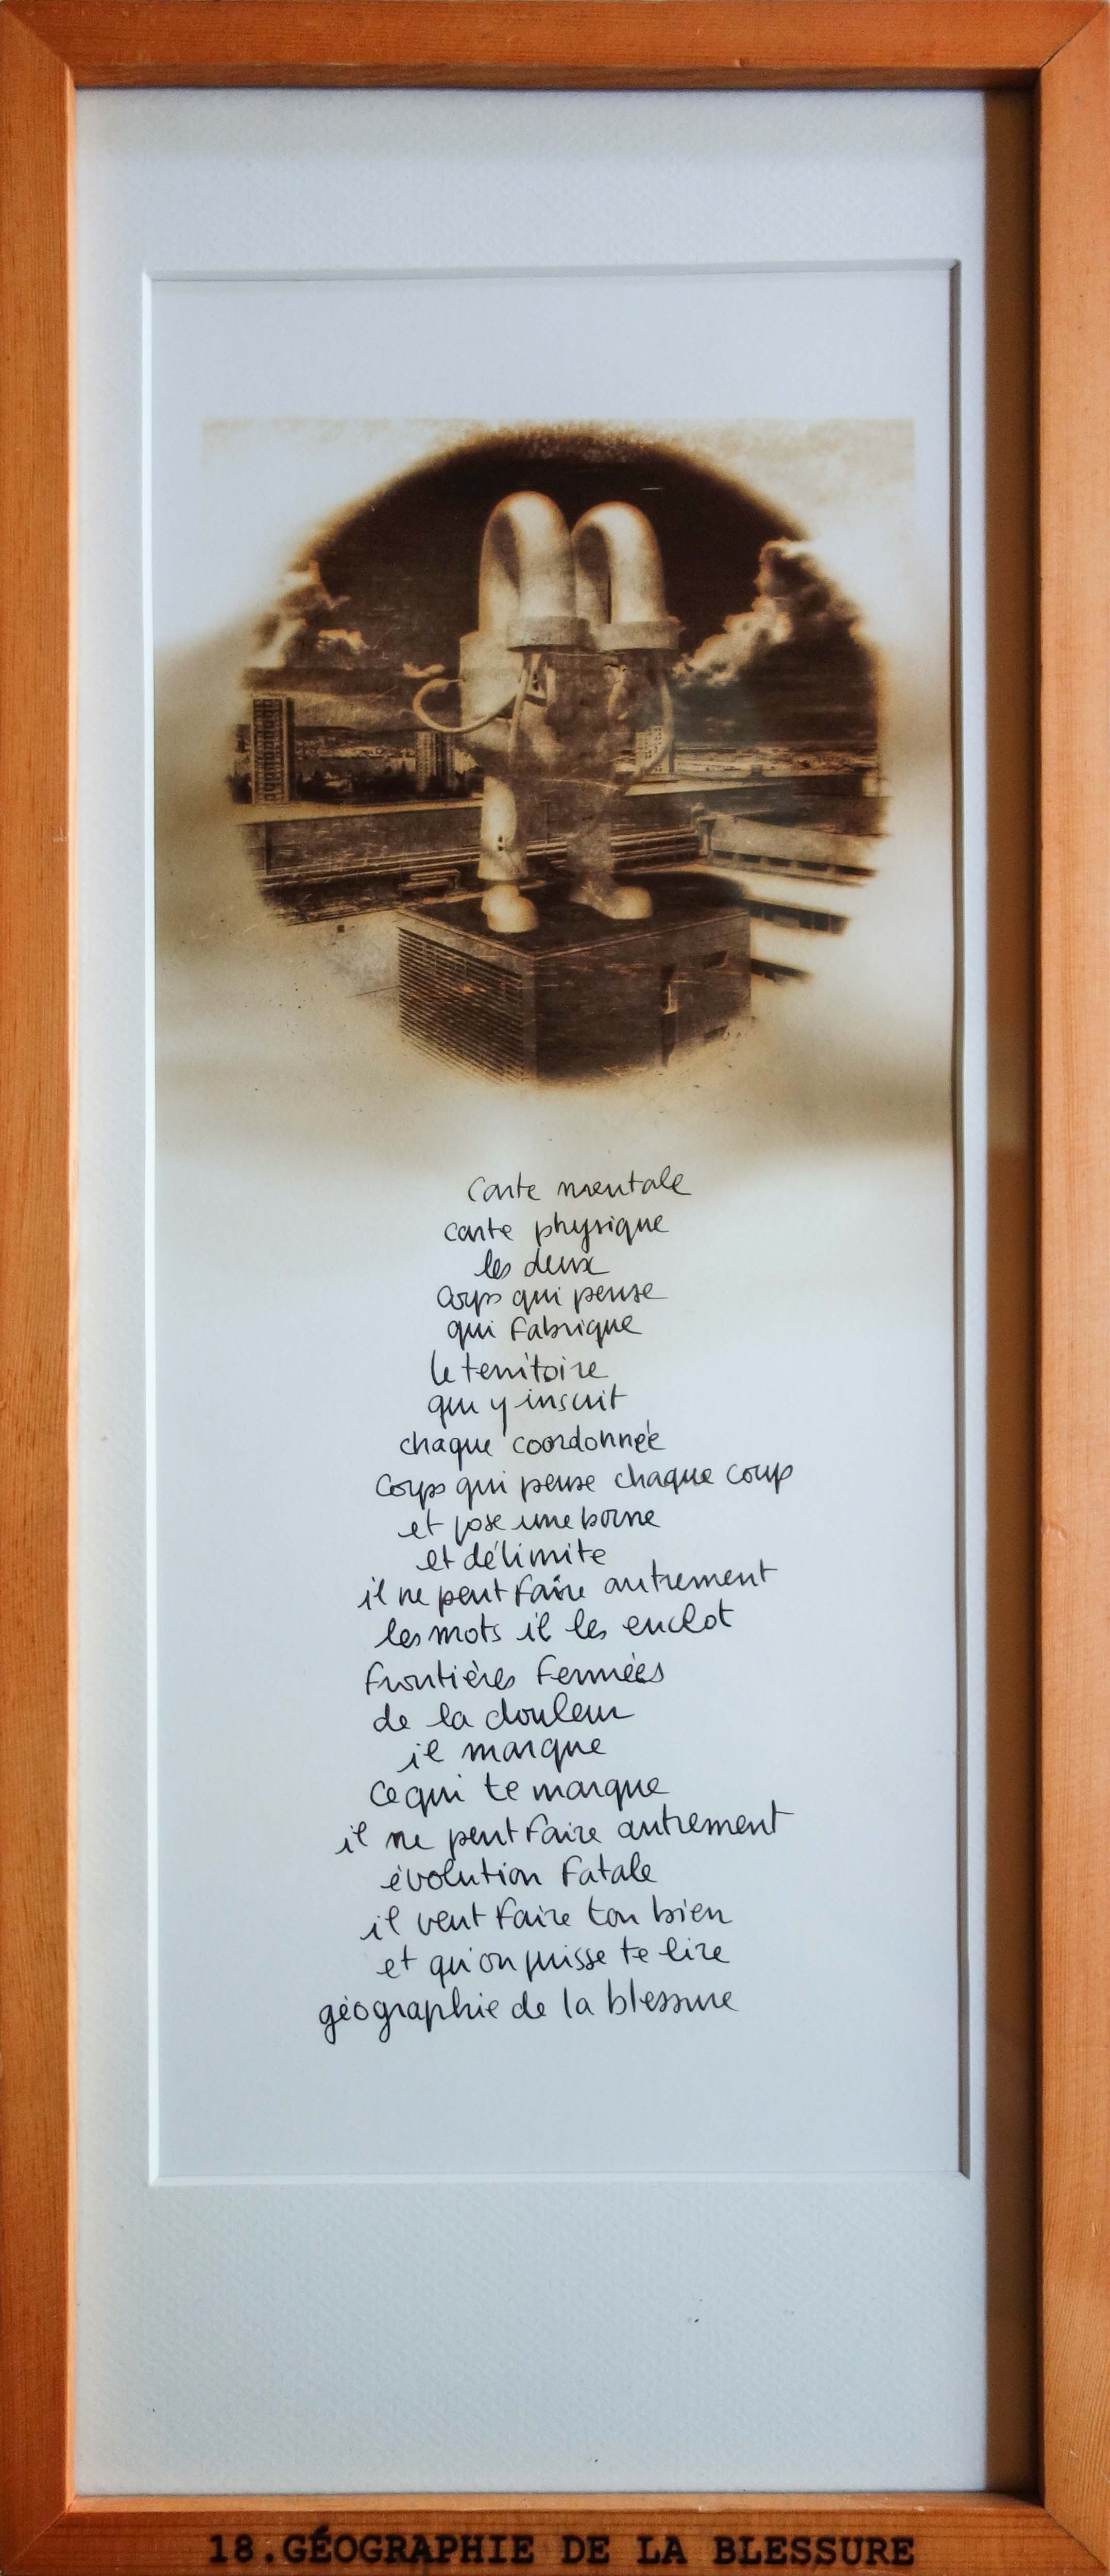 Carte mentale
carte physique
les deux
Corps qui pense
qui fabrique
le territoire
qui y inscrit
chaque coordonnée
Corps qui pense chaque coup
et pose une borne
et délimite
il ne peut faire autrement
les mots il les enclot
frontières fermées
de la douleur
il marque
ce qui te marque
il ne peut faire autrement
évolution fatale
il veut faire ton bien
et qu'on puisse te lire
géographie de la blessure
18.GÉOGRAPHIE DE LA BLESSURE